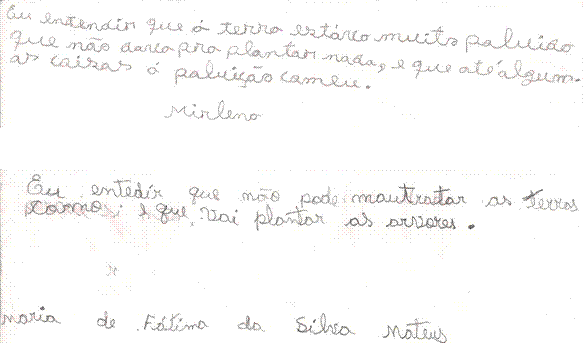 Eu entendir que á terra estárco muito paluido
que não darco pra plantar nada, e que até algum-
as caisas á paluição cameu.
Mirleno
Eu entedir que não pode mautratar as terras
como i e que vai plantar as arvores.
maria de Fátima da Silva Mateus